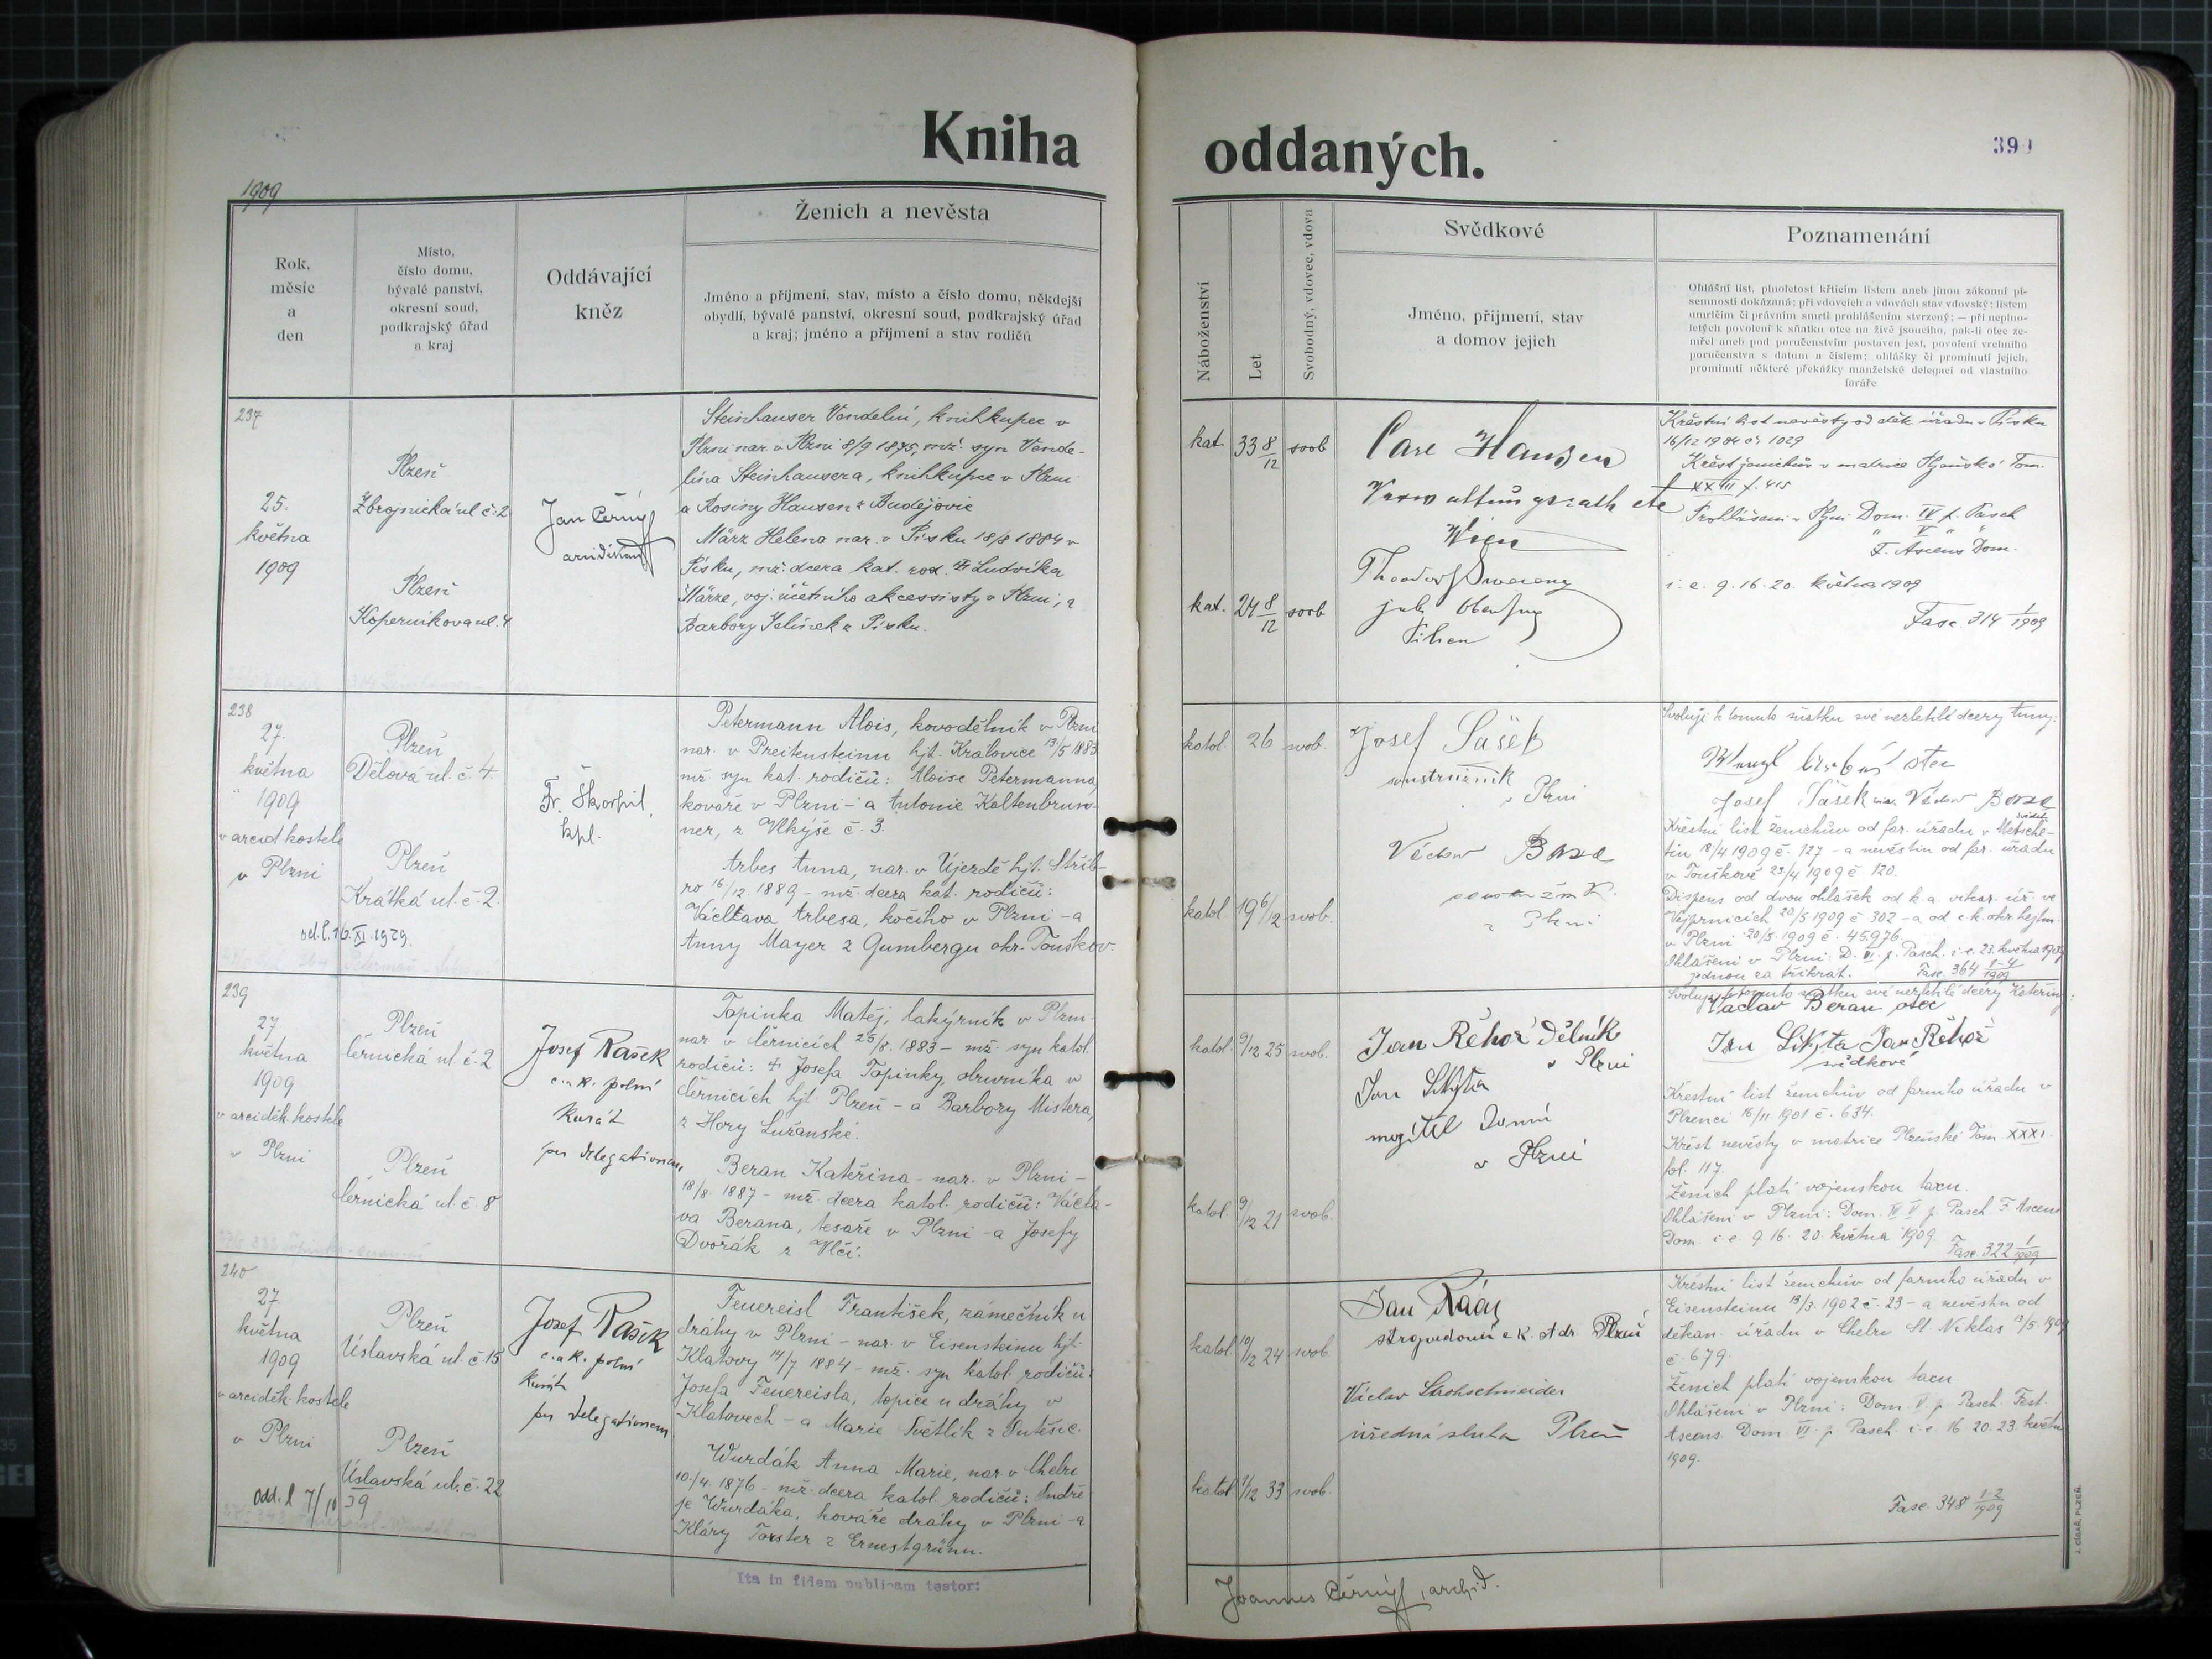 Kniha
oddaných.
390
1909
Rok,
měsíc
a
den
Místo,
číslo domu,
bývalé panství,
okresní soud,
podkrajský úřad
a kraj
Oddávající
kněz
Ženich a nevěsta
Jméno a příjmení, stav, místo a číslo domu, někdejší
obydlí, bývalé panství, okresní soud, podkrajský úřad
a kraj; jméno a příjmení a stav rodičů
Náboženství
Let
Svobodný, vdovec, vdova
Svědkové
Jméno, příjmení, stav
a domov jejich
Poznamenání
Ohlášní list, plnoletost křticím listem aneb jinou zákonní pí-
semností dokázaná; při vdovcích a vdovách stav vdovský; listem
umrlčím či právním smrti prohlášením stvrzený; — při neplno-
letých povolení k sňatku otce na živě jsoucího, pak-li otec ze-
mřel aneb pod poručenstvím postaven jest, povolení vrchního
poručenstva s datum a číslem; ohlášky či prominutí jejich,
prominutí některé překážky manželské delegací od vlastního
faráře
237
25.
května
1909
Plzeň
Zbrojnická ul č. 2
Plzeň
Koperníkova ul. 4
Jan Černý
arciděkan
Steinhauser Vendelín, knihkupec v
Plzni nar. v Plzni 8/9 1875, mž. syn Vende-
lína Steinhausera, knihkupce v Plzni
a Rosiny Hausen z Budějovic
März Helena nar. v Písku 18/8 1884 v
Písku, mž. dcera kat. rod. † Ludvíka
Märze, voj. účetního akcessisty v Plzni, a
Barbory Jelínek z Písku.
kat. 33 8/12 svob
kat. 24 8/12 svob
Carl Hansen
Verwaltungsrath etc
Wien
Pilsen
Křestní list nevěsty od děk. úřadu v Písku
16/12 1904 č. 1029
Křest ženichův v matrice Plzeňské Tom.
XXIII f. 415
Prohlášeni v Plzni Dom. IV p. Pasch
" V " "
F. Ascens Dom.
i. e. 9. 16. 20. května 1909
Fasc. 314 1/1909
238
27.
května
1909
v arcid kostele
v Plzni
Plzeň
Dělová ul. č. 4.
Plzeň
Krátká ul. č. 2.
Fr. Škorpil,
kpl.
Petermann Alois, kovodělník v Plzni
nar. v Preitensteinu hjt. Kralovice 13/5 1883
mž. syn kat. rodičů: Aloise Petermanna,
kováře v Plzni - a Antonie Kaltenbrun-
ner, z Vlkýše č. 3.
Arbes Anna, nar. v Újezdě hjt. Stříb-
ro 16/12. 1889 - mž. dcera kat. rodičů:
Václava Arbesa, kočího v Plzni - a
Anny Mayer z Gumbergu okr. Touškov.
katol. 26 svob.
katol. 19 6/12 svob.
Josef Sašek
soustružník
v Plzni
Václav
z Plzni
Svoluji k tomuto sňatku své nezletilé dcery Anny:
otec
Josef Sašek Václav
Křestní list ženichův od far. úřadu v Metsche-
tin 18/4 1909 č. 127 - a nevěstin od far. úřadu
v Touškově 23/4 1909 č. 120.
Dispens od dvou ohlášek od k. a. vikar. úř. ve
Vejprnicích 20/5 1909 č. 302 - a od c. k. okr. hejtm.
v Plzni 20/5. 1909 č. 45976.
Ohlášeni v Plzni: D. VI. p. Pasch. i. e. 23. května 1909
jednou za třikrát. Fasc. 364 1-4/1909
239
27
května
1909
v arciděk. kostele
v Plzni
Plzeň
Černická ul. č. 2
Plzeň
Černická ul. č. 8
Josef Rašek
c. a k. polní
kurát
per delegationem
Topinka Matěj, lakýrník v Plzni
nar. v Černicích 25/8. 1883 - mž. syn katol.
rodičů: † Josefa Topinky, obuvníka v
Černicích hjt. Plzeň - a Barbory Mistera,
z Hory Lužanské.
Beran Kateřina - nar. v Plzni -
18/8. 1887 - mž. dcera katol. rodičů: Václa-
va Berana, tesaře v Plzni - a Josefy
Dvořák z Vlčí.
katol. 9/12 25 svob.
katol. 9/12 21 svob.
Jan Řehoř dělník
v Plzni
Jan
majitel domu
v Plzni
Svoluji k tomuto sňatku své nezletilé dcery Kateřiny:
Václav Beran otec
Jan Řehoř
svědkové
Křestní list ženichův od farního úřadu v
Plzenci 16/11 1901 č. 634.
Křest nevěsty v matrice Plzeňské Tom. XXXI.
fol. 117.
Ženich platí vojenskou taxu.
Ohlášeni v Plzni: Dom. IV. V p. Pasch. F. Ascens
Dom. i. e. 9 16. 20. května 1909.
Fasc. 322 1/1909
240
27.
května
1909
v arciděk. kostele
v Plzni
Plzeň
Úslavská ul. č. 15
Plzeň
Úslavská ul. č. 22
Josef Rašek
c. a k. polní
kurát
per delegationem
Feuereisl František, zámečník u
dráhy v Plzni - nar. v Eisensteinu hjt.
Klatovy 14/7 1884 - mž. syn katol. rodičů:
Josefa Feuereisla, topiče u dráhy v
Klatovech - a Marie Světlík z
Wurdák Anna Marie, nar. v Chebu
10./4. 1876 - mž. dcera katol. rodičů: Ondře-
je Wurdáka, kováře dráhy v Plzni - a
Kláry Forster z Ernestgrünu.
katol. 10/12 24 svob.
katol. 1/12 33 svob.
Jan
strojvedoucí c. k. st. dr. Plzeň
Václav Strohschneider
úřední sluha Plzeň
Křestní list ženichův od farního úřadu v
Eisensteinu 13/3. 1902 č. 23 - a nevěstin od
děkan. úřadu v Chebu St. Niklas 12/5 1909
č. 679.
Ženich platí vojenskou taxu.
Ohlášeni v Plzni: Dom. V. p. Pasch. Fest.
Ascens. Dom. VI. p. Pasch. i. e. 16. 20. 23. května
1909.
Fasc. 348 1-2/1909
Ita in fidem publicam testor:
Joannes Černý, archid.
J. CÍSAŘ, PLZEŇ.